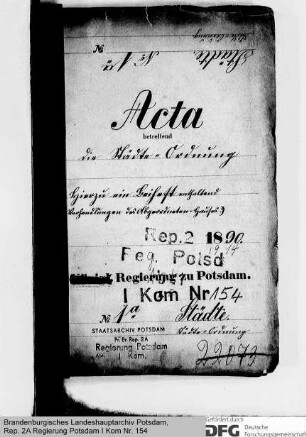 №
Acta
betreffend
die Städte-Ordnung
Hierzu ein Beiheft enthaltend
Verhandlungen des Abgeordneten-Hauses
Rep. 2 1890
Reg. Potsd
Regierung zu Potsdam.
I Kom Nr 154
№ 1a Städte
STAATSARCHIV POTSDAM
Städte-Ordnung
Pr. Br. Rep. 2A
Regierung Potsdam
I Kom.
22073
Brandenburgisches Landeshauptarchiv Potsdam,
Rep. 2A Regierung Potsdam I Kom Nr. 154
Gefördert durch
DFG Deutsche
Forschungsgemeinschaft